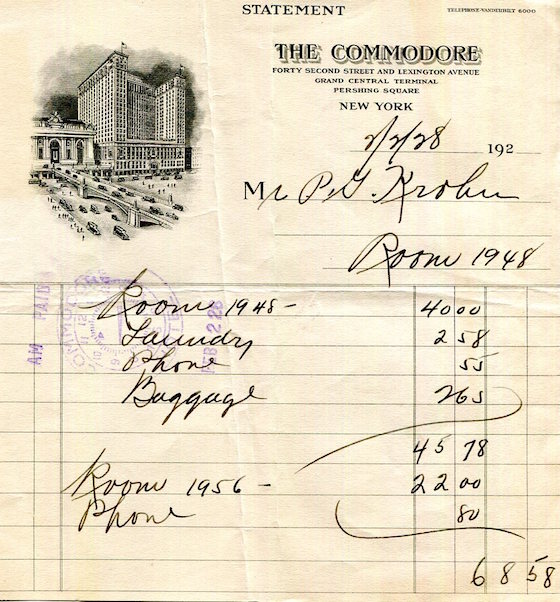 STATEMENT
TELEPHONE-VANDERBILT 6000
THE COMMODORE
FORTY SECOND STREET AND LEXINGTON AVENUE
GRAND CENTRAL TERMINAL
PERSHING SQUARE
NEW YORK
2/2/28 192
Mr P. G. Krohn
Room 1948
Room 1948 - 40 00
Laundry 2 58
Phone 55
Baggage 2 65
45 78
Room 1956 - 22 00
Phone 80
68 58
AM PAID
FEB 2 28